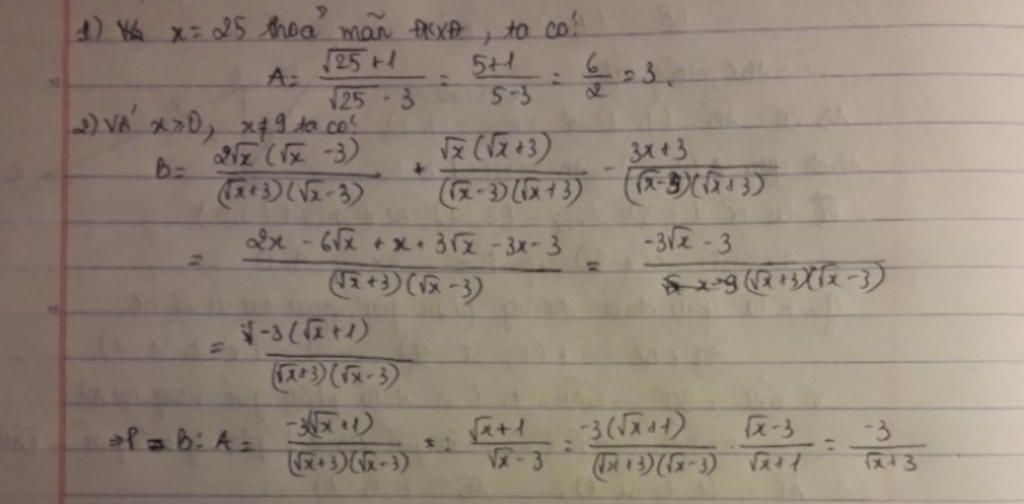 1) Với x = 25 thoả mãn ĐKXĐ, ta có:
A = \frac{\sqrt{25}+1}{\sqrt{25}-3} = \frac{5+1}{5-3} = \frac{6}{2} = 3.
2) Với x ≥ 0, x ≠ 9 ta có:
B = \frac{2\sqrt{x}(\sqrt{x}-3)}{(\sqrt{x}+3)(\sqrt{x}-3)} + \frac{\sqrt{x}(\sqrt{x}+3)}{(\sqrt{x}-3)(\sqrt{x}+3)} - \frac{3x+3}{(\sqrt{x}-3)(\sqrt{x}+3)}
= \frac{2x-6\sqrt{x}+x+3\sqrt{x}-3x-3}{(\sqrt{x}+3)(\sqrt{x}-3)} = \frac{-3\sqrt{x}-3}{(\sqrt{x}+3)(\sqrt{x}-3)}
= \frac{-3(\sqrt{x}+1)}{(\sqrt{x}+3)(\sqrt{x}-3)}
⇒ P = B : A = \frac{-3(\sqrt{x}+1)}{(\sqrt{x}+3)(\sqrt{x}-3)} : \frac{\sqrt{x}+1}{\sqrt{x}-3} = \frac{-3(\sqrt{x}+1)}{(\sqrt{x}+3)(\sqrt{x}-3)} . \frac{\sqrt{x}-3}{\sqrt{x}+1} = \frac{-3}{\sqrt{x}+3}